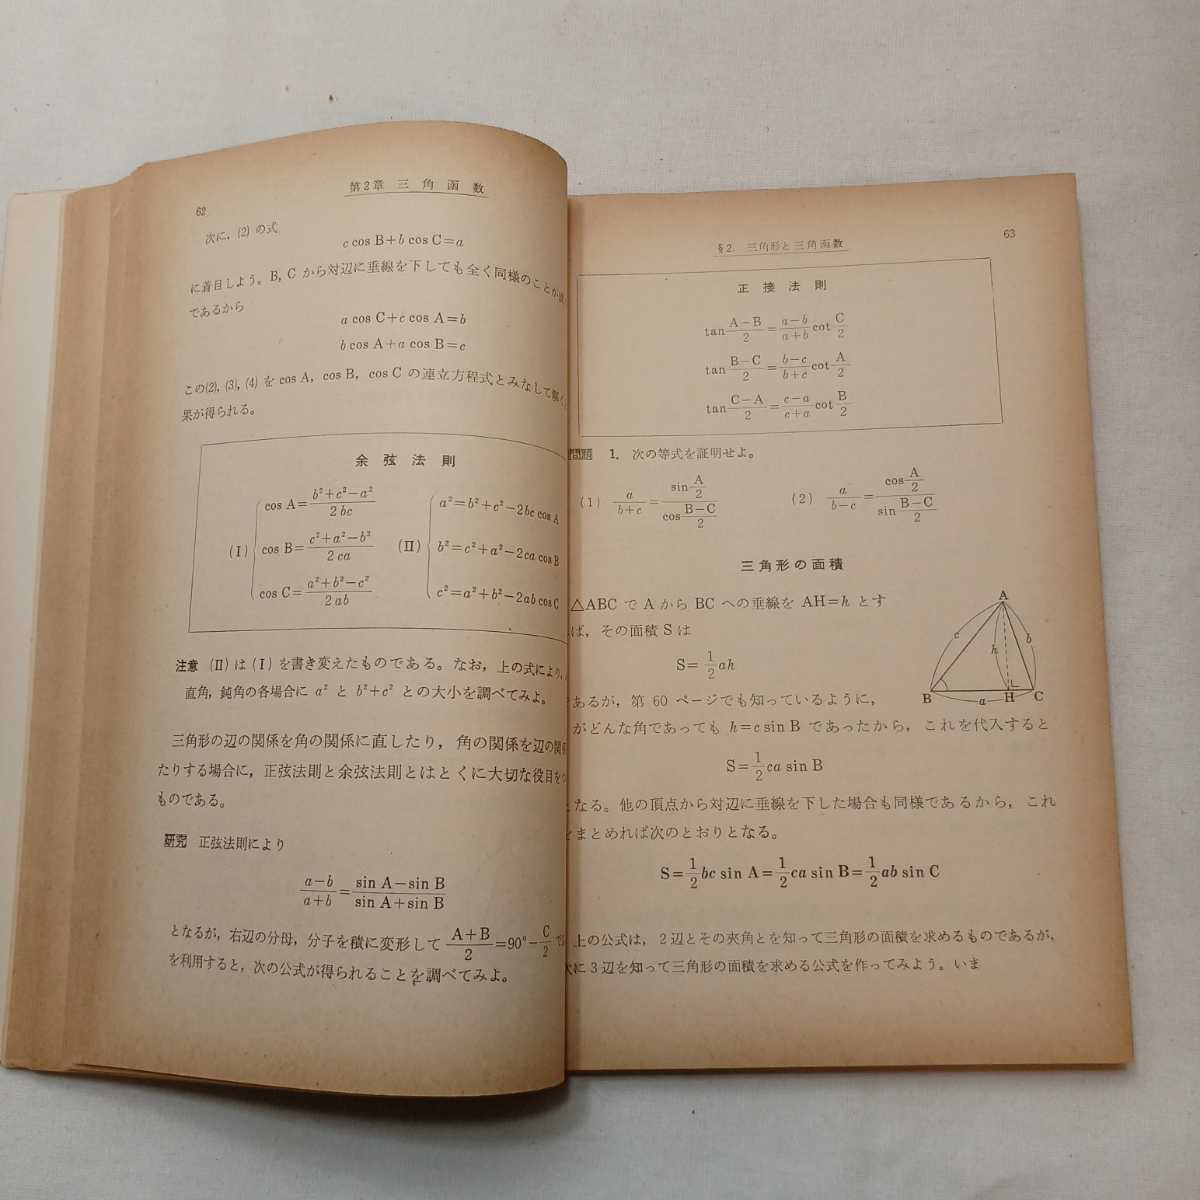 第2章 三角函数
62
次に,(2)の式
c cos B+b cos C=a
に着目しよう。B, C から対辺に垂線を下しても全く同様のことが
であるから
a cos C+c cos A=b
b cos A+a cos B=c
この(2),(3),(4)を cos A, cos B, cos C の連立方程式とみなして解く
果が得られる。
余弦法則
(I) cos A=(b²+c²−a²)/2bc
cos B=(c²+a²−b²)/2ca
cos C=(a²+b²−c²)/2ab
(II) a²=b²+c²−2bc cos A
b²=c²+a²−2ca cos B
c²=a²+b²−2ab cos C
注意 (II)は(I)を書き変えたものである。なお,上の式により,
直角,鈍角の各場合に a² と b²+c² との大小を調べてみよ。
三角形の辺の関係を角の関係に直したり,角の関係を辺の関
たりする場合に,正弦法則と余弦法則とはとくに大切な役目を
ものである。
研究 正弦法則により
(a−b)/(a+b)=(sin A−sin B)/(sin A+sin B)
となるが,右辺の分母,分子を積に変形して (A+B)/2=90°−C/2
を利用すると,次の公式が得られることを調べてみよ。
§2. 三角形と三角函数
63
正接法則
tan (A−B)/2=(a−b)/(a+b) cot C/2
tan (B−C)/2=(b−c)/(b+c) cot A/2
tan (C−A)/2=(c−a)/(c+a) cot B/2
問題 1. 次の等式を証明せよ。
(1) a/(b+c)=(sin A/2)/(cos (B−C)/2)
(2) a/(b−c)=(cos A/2)/(sin (B−C)/2)
三角形の面積
△ABC で A から BC への垂線を AH=h とす
ば,その面積 S は
S=1/2 ah
あるが,第 60 ページでも知っているように,
がどんな角であっても h=c sin B であったから,これを代入すると
S=1/2 ca sin B
となる。他の頂点から対辺に垂線を下した場合も同様であるから,これ
をまとめれば次のとおりとなる。
S=1/2 bc sin A=1/2 ca sin B=1/2 ab sin C
上の公式は,2辺とその夾角とを知って三角形の面積を求めるものであるが,
次に3辺を知って三角形の面積を求める公式を作ってみよう。いま
A
c
h
b
B
a
H
C